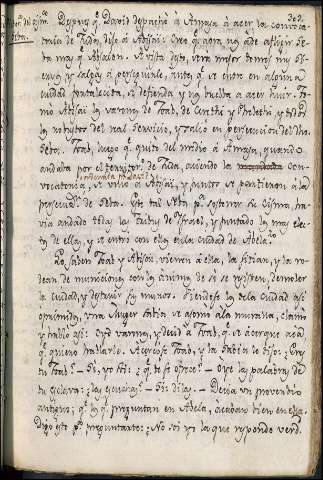 202
Despues q.e David despachó á Amasa á acer la convoca-
toria de Judá, dijo á Abisai: Creo q.e aora nos á de afligir Se-
ba mas q.e Absalon. Si vista esto, será mejor tomes mis si-
ervos y salgas á perseguirle, antes q.e se entre en alguna
ciudad fortalecida, se defienda y nos buelba á acer huir. To-
mó Abisai los varones de Joab, de Ceretha y Pheletha y todos
los robustos del real servicio, y salió en persecucion del dho
Seba. Joab, luego q.e quitó del medio á Amasa, quando
andaba por el territor.o de Judá, aciendo la con-
vocatoria, se unió á Abisai, y juntos se
de Seba. Este tal
andado todas las Tribus de Israel, y juntado los mas elec-
tos de ellas, y se entró con ellos en la ciudad de Abela.
Lo saben Joab y Abisai, vienen á ella, la sitian, y la ro-
dean de municiones con los animos de si se resisten, demoler
la ciudad, y destruir sus muros. Viendose los de la ciudad asi
oprimidos, una Muger sabia se asomó á la muralla, clamó
y habló asi: Oyd varones, y decid á Joab, q.e se acerque acá
q.e quiero hablarle. Acercose Joab, y la sabia le dijo: Eres
tu Joab? – Si, yo soi: ¿q.e te se ofrece? – Oye las palabras de
tu esclava: ¿las escuchas? – Si: dilas. – Decia un proverbio
antiguo; q.e los q.e preguntan en Abela, acaban bien en ella.
Digo esto p.a preguntarte: ¿No soi yo la que respondo verd.